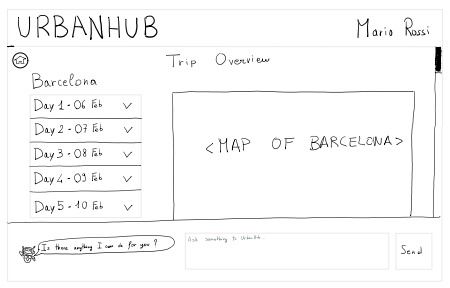 URBANHUB
Mario Rossi
Trip Overview
Barcelona
Day 1 - 06 Feb
Day 2 - 07 Feb
Day 3 - 08 Feb
Day 4 - 09 Feb
Day 5 - 10 Feb
<MAP OF BARCELONA>
Is there anything I can do for you ?
Ask something to UrbanHub...
Send